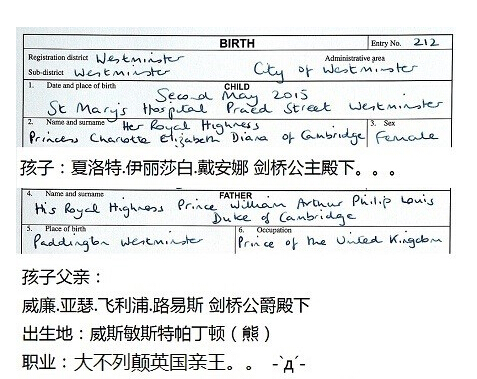 BIRTH
Entry No. 212
Registration district Westminster
Administrative area
Sub-district Westminster
City of Westminster
1. Date and place of birth
CHILD
Second May 2015
St Mary's Hospital Praed Street Westminster
2. Name and surname
Her Royal Highness
3. Sex
Princess Charlotte Elizabeth Diana of Cambridge
Female
孩子：夏洛特.伊丽莎白.戴安娜 剑桥公主殿下。。。
4. Name and surname
FATHER
His Royal Highness Prince William Arthur Philip Louis
Duke of Cambridge
5. Place of birth
6. Occupation
Paddington Westminster
Prince of the United Kingdom
孩子父亲：
威廉.亚瑟.飞利浦.路易斯 剑桥公爵殿下
出生地：威斯敏斯特帕丁顿（熊）
职业：大不列颠英国亲王。。 -`д´-